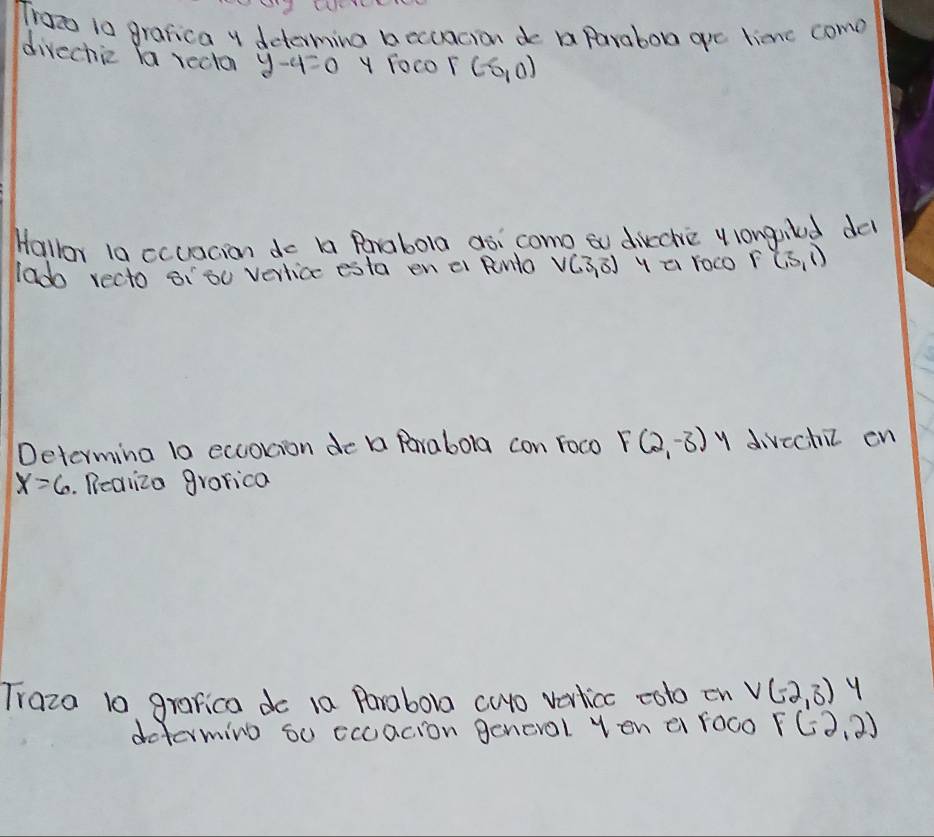 Trazo la grafica y determina la ecuacion de la Parabola que tiene como
divectriz la recta y-4=0 y Foco F (-6,0)
Hallar la ecuacion de la Parabola asi como su directriz y longuitud del
lado recto si su vertice esta en el Punto V(3,3) y el Foco F (3,1)
Determina la ecuacion de la Parabola con Foco F(2,-3) y divectriz en
X=6. Realiza grafica
Traza la grafica de la Parabola cuyo vertice esta en V(-2,3) y
determina su ecuacion general y en el Foco F(-2,2)